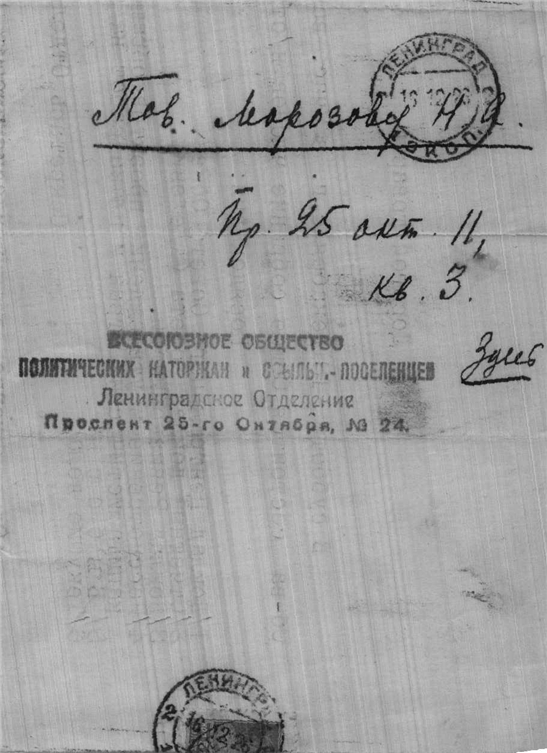 ЛЕНИНГРАД
16 12 26
ЭКСП.
Тов. Морозову Н А.
Пр. 25 окт. 11,
кв. 3.
Здесь
ВСЕСОЮЗНОЕ ОБЩЕСТВО
ПОЛИТИЧЕСКИХ КАТОРЖАН и ССЫЛЬН.-ПОСЕЛЕНЦЕВ
Ленинградское Отделение
Проспект 25-го Октября, № 24.
2 ЛЕНИНГРА
16 12 26